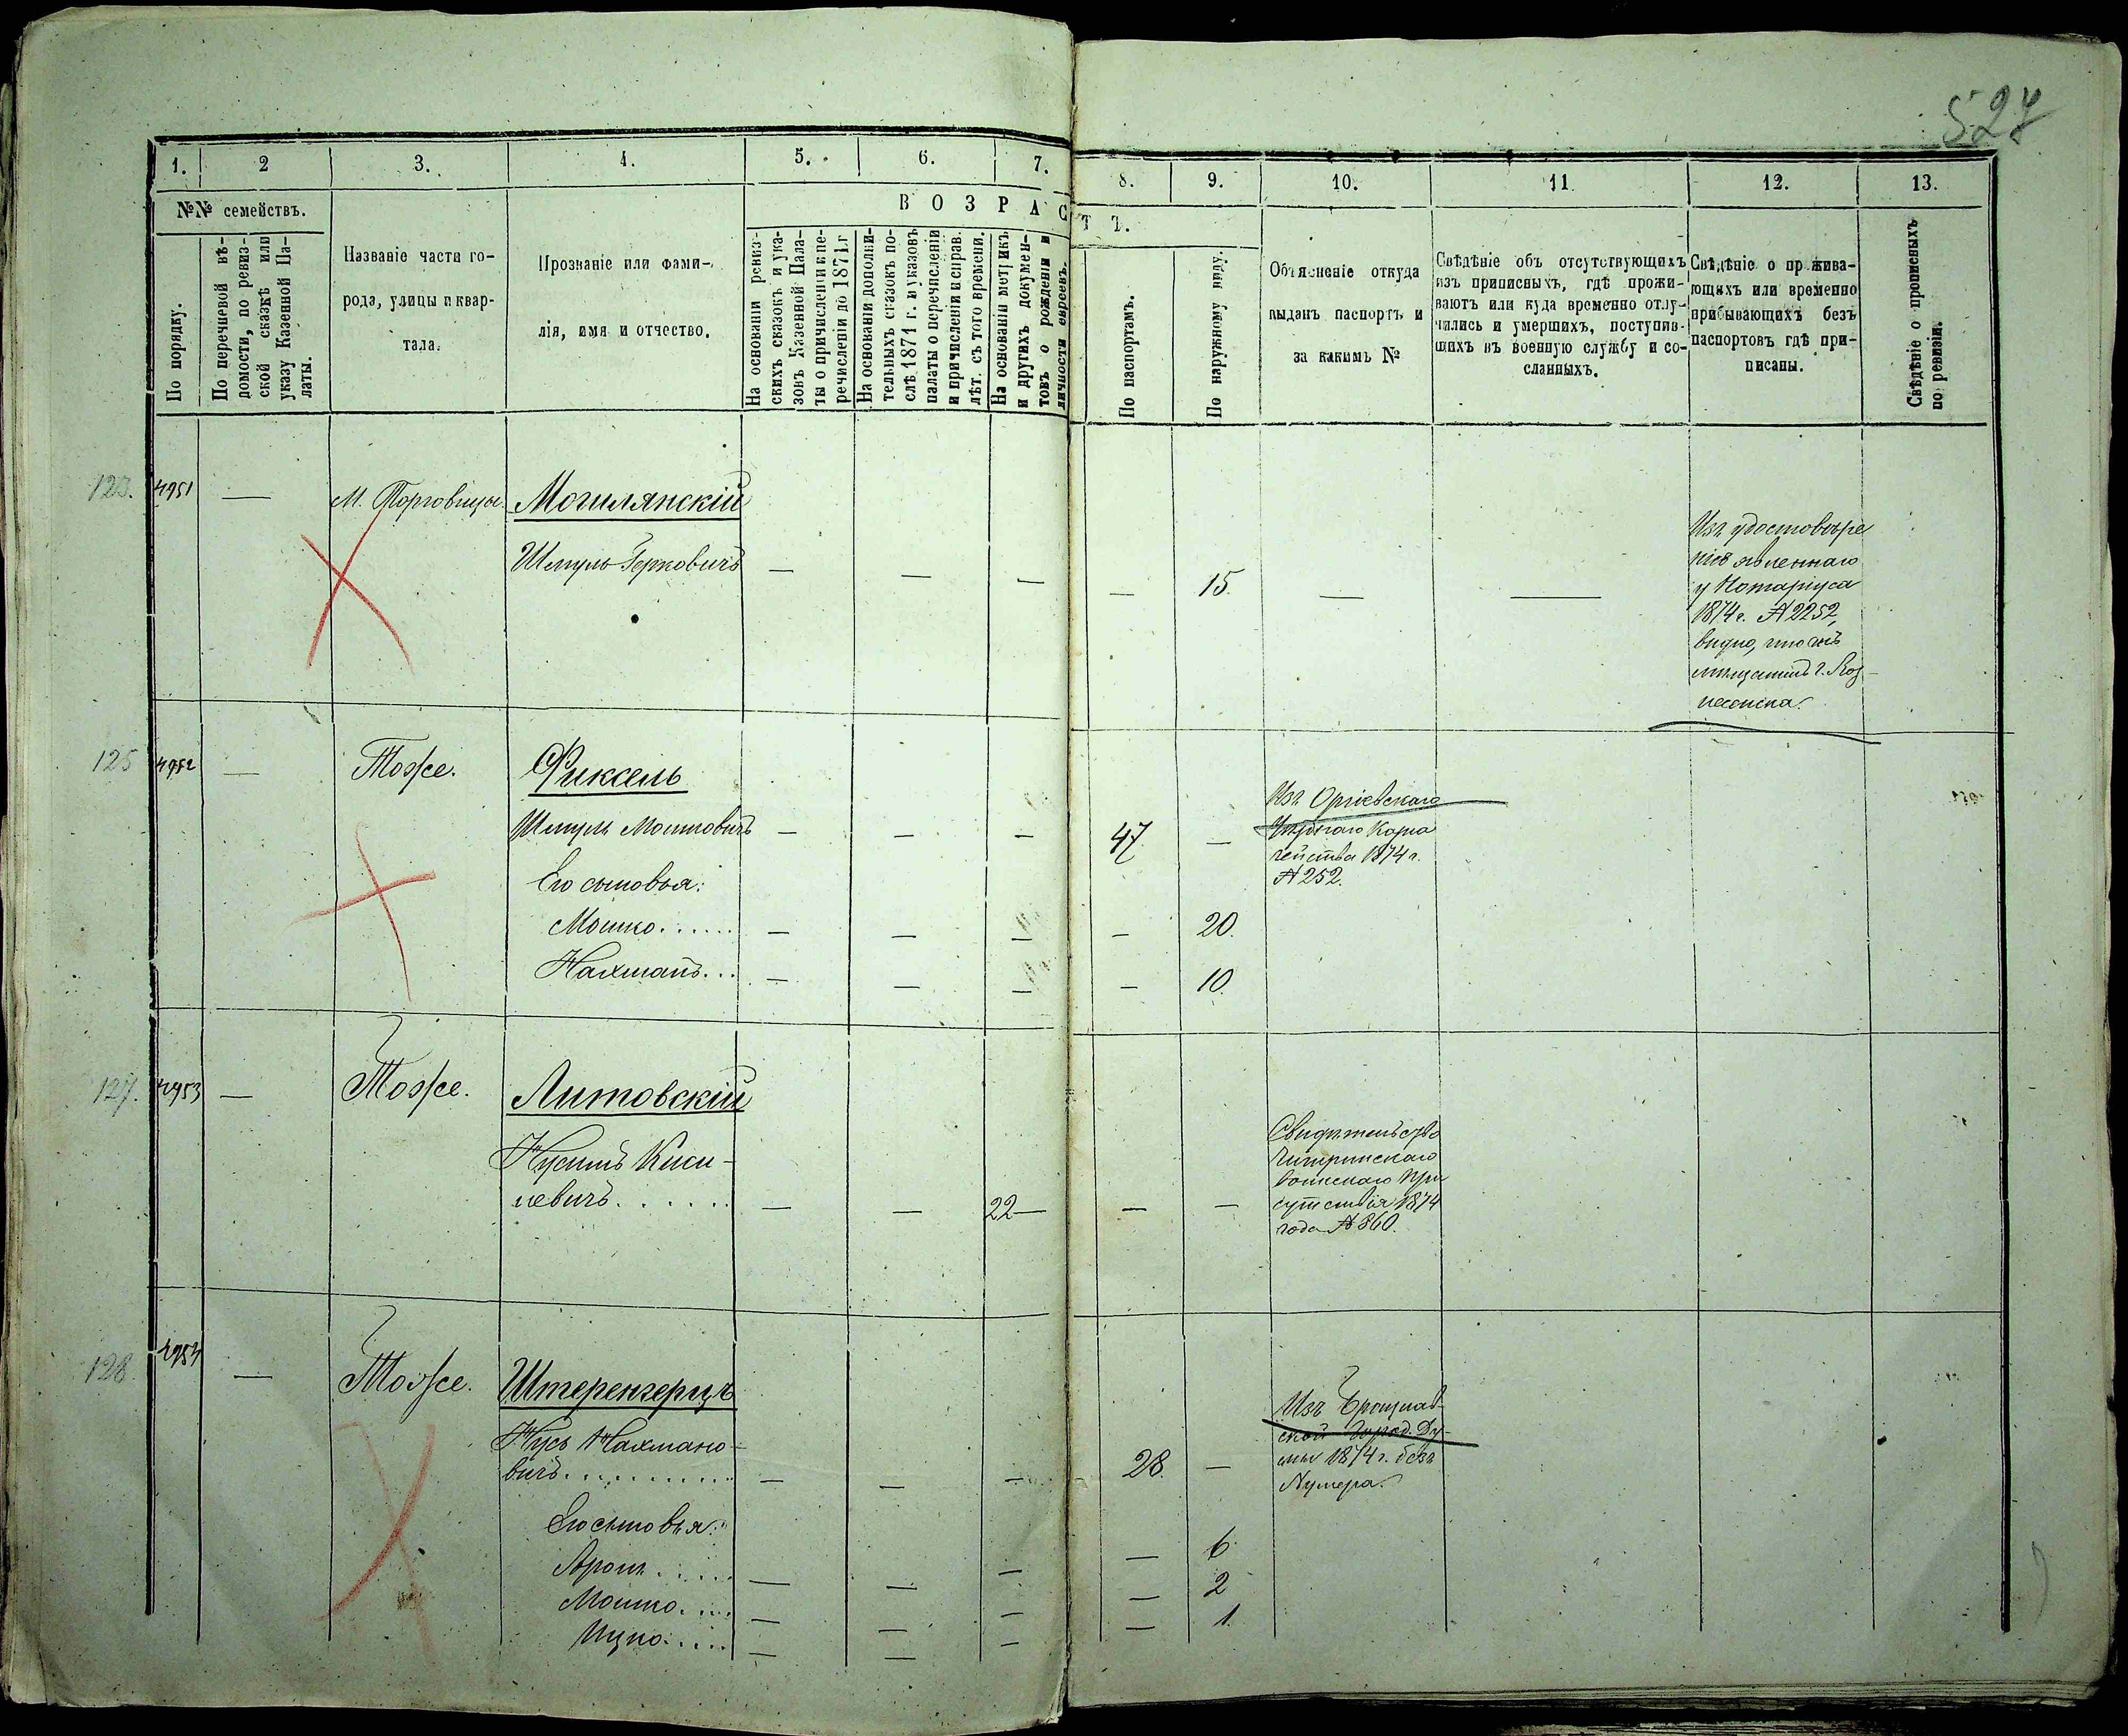 527
1. 2 3. 4. 5. 6. 7. 8. 9. 10. 11 12. 13.
№№ семействъ.
В О З Р А С Т Ъ.
По порядку.
По перечневой вѣ-
домости, по ревиз-
ской сказкѣ или
указу Казенной Па-
латы.
Названіе части го-
рода, улицы и квар-
тала.
Прозваніе или фами-
лія, имя и отчество.
На основаніи ревиз-
скихъ сказокъ и ука-
зовъ Казенной Пала-
ты о причисленіи и пе-
речисленіи до 1871 г.
На основаніи дополни-
тельныхъ сказокъ по-
слѣ 1871 г. и указовъ
палаты о перечисленіи
и причисленіи и справ.
лѣт. съ того времени.
На основаніи метрикъ
и другихъ докумен-
товъ о рожденіи и
личности евреевъ.
По паспортамъ.
По наружному виду.
Объясненіе откуда
выданъ паспортъ и
за какимъ №
Свѣдѣніе объ отсутствующихъ
изъ приписныхъ, гдѣ прожи-
ваютъ или куда временно отлу-
чились и умершихъ, поступив-
шихъ въ военную службу и со-
сланныхъ.
Свѣдѣніе о прожива-
ющихъ или временно
прибывающихъ безъ
паспортовъ гдѣ при-
писаны.
Свѣдѣніе о прописныхъ
по ревизіи.
123. 4951 — М. Торговица. Могилянскій
Шмуль Герковичъ — — — — 15. — —
Изъ удостовѣре
нія явленнаго
у Нотаріуса
1874 г. № 2252,
видно, что онъ
мѣщанинъ г. Воз-
несенска.
125 4952 — Тоже. Фиксель
Шмуль Мошковичъ — — — 47. —
Изъ Оргіевскаго
Уѣзднаго Казна
чейства 1874 г.
№ 252.
Его сыновья:
Мошко...... — — — — 20.
Нахманъ... — — — — 10.
127. 4953 — Тоже. Литовскій
Нусинъ Киси-
левичъ...... — — 22 — — —
Свидѣтельство
Чигиринскаго
воинскаго при
сутствія 1874
года № 860.
128 4954 — Тоже. Штеренгерцъ
Нусь Нахмано-
вичъ.......... — — — 28. —
Изъ Брацлав-
ской Город. Ду-
мы 1874 г. безъ
Нумера.
Его сыновья:
Аронъ...... — — — — 6.
Мошко.... — — — — 2
Ицко..... — — — — 1.